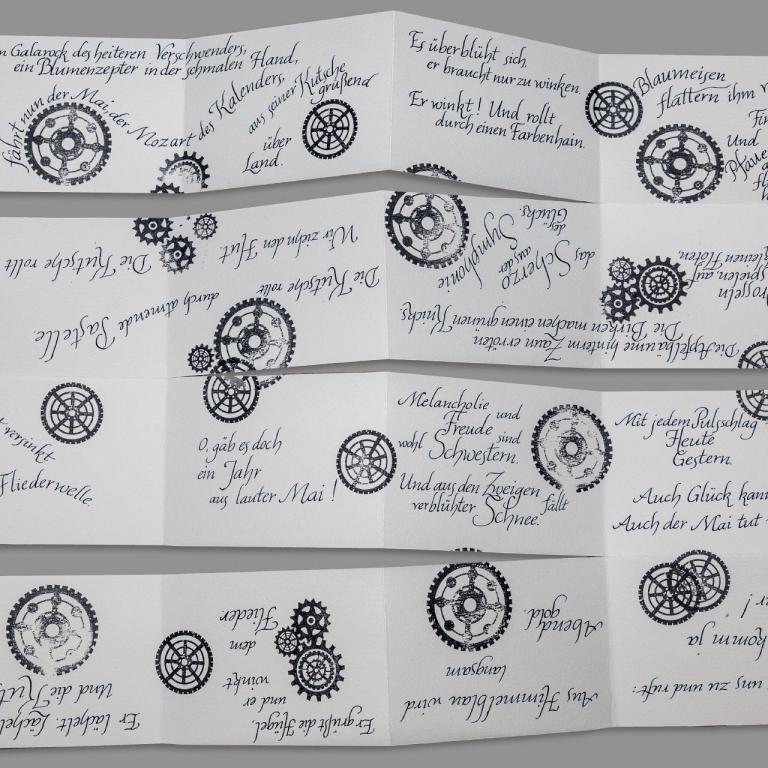 Galarock des heiteren Verschwenders,
ein Blumenzepter in der schmalen Hand,
fährt nun der Mai, der Mozart des Kalenders,
aus seiner Kutsche grüßend
über
Land.
Es überblüht sich,
er braucht nur zu winken.
Er winkt! Und rollt
durch einen Farbenhain.
Blaumeisen
flattern ihm
Und
Die Kutsche rollt
Wir ziehn den Hut.
Die Kutsche rollt
durch atmende Pastelle.
des
Glücks.
das
Scherzo
aus der
Symphonie
Die Birken machen einen grünen Knicks.
Die Apfelbäume hinterm Zaun erröten
spielen auf
kleinen Flöten.
versinkt
Fliederwelle.
O, gäb es doch
ein Jahr
aus lauter Mai!
Melancholie
und
Freude
wohl sind
Schwestern.
Und aus den Zweigen
fällt
verblühter
Schnee.
Mit jedem Pulsschlag
Heute
Gestern.
Auch Glück kann
Auch der Mai tut
Er lächelt. Lächelt
Und die
Er grüßt die Hügel,
und er
winkt
dem
Flieder
Aus Himmelblau wird
langsam
Abend
gold.
uns zu und ruft:
komm ja
!